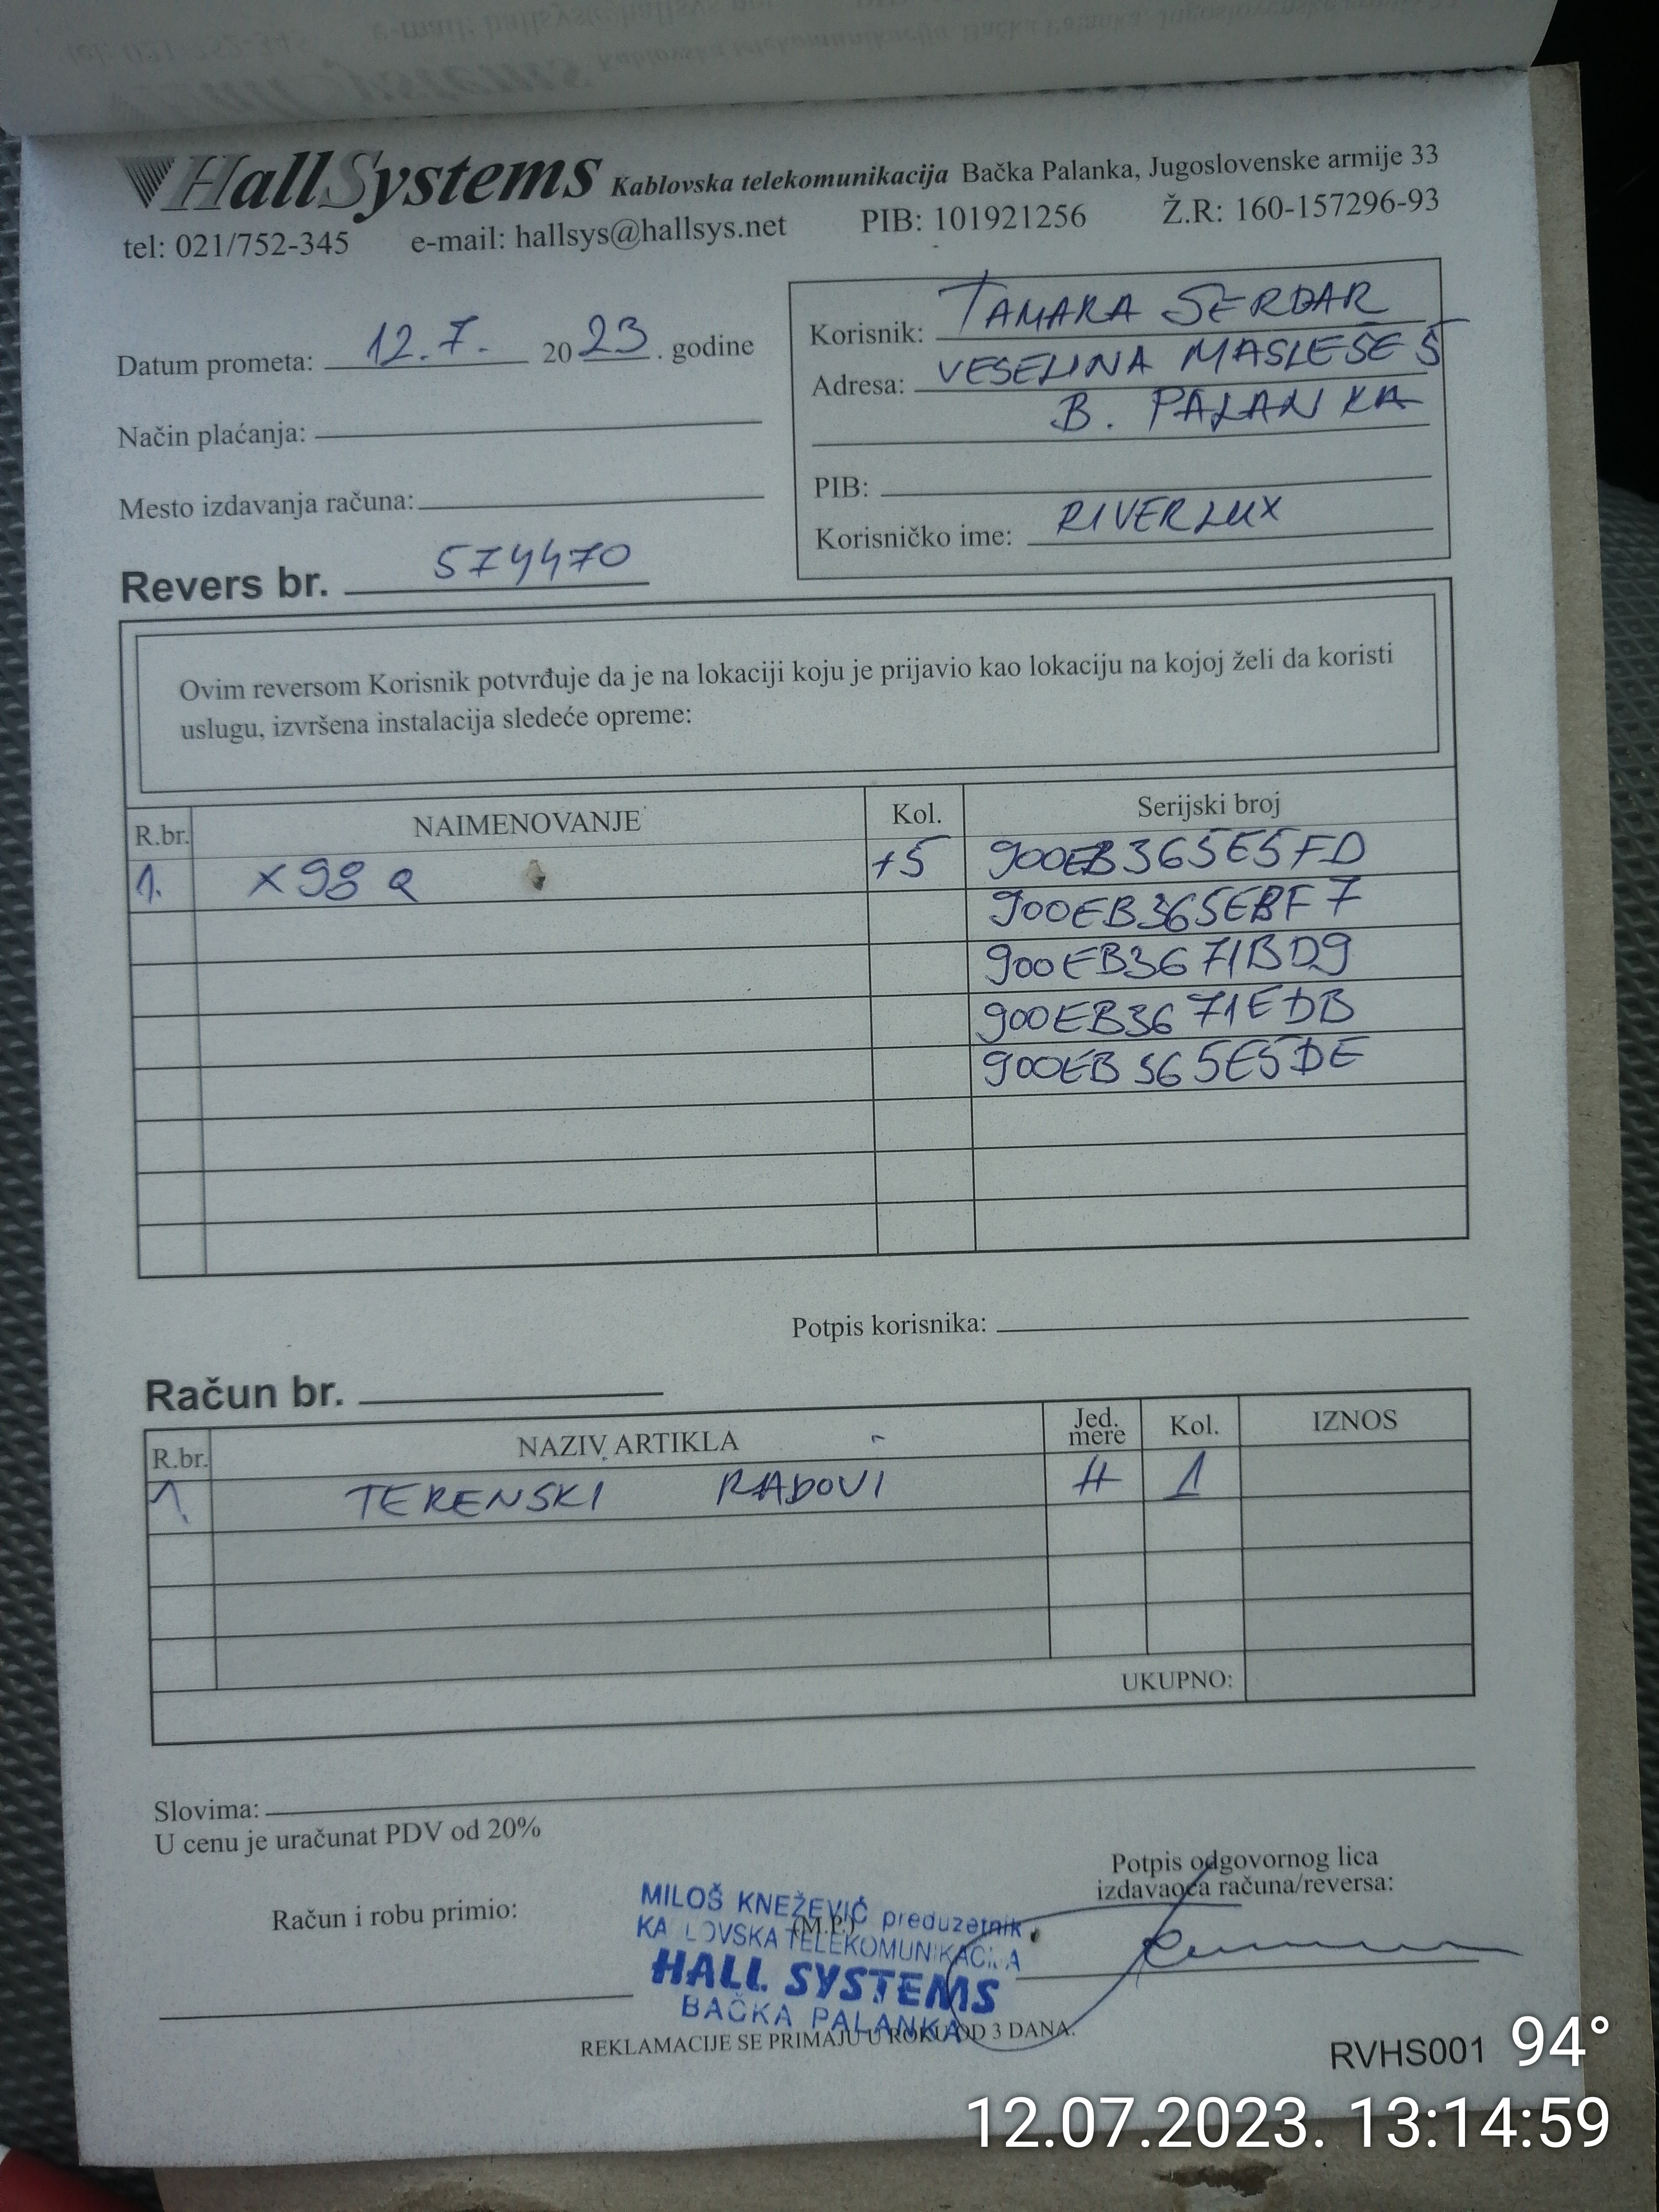 HallSystems Kablovska telekomunikacija Bačka Palanka, Jugoslovenske armije 33
tel: 021/752-345 e-mail: hallsys@hallsys.net PIB: 101921256 Ž.R: 160-157296-93
Datum prometa: 12.7. 2023. godine
Način plaćanja:
Mesto izdavanja računa:
Revers br. 574470
Korisnik: TAMARA SERDAR
Adresa: VESELINA MASLEŠE 5
B. PALANKA
PIB:
Korisničko ime: RIVERLUX
Ovim reversom Korisnik potvrđuje da je na lokaciji koju je prijavio kao lokaciju na kojoj želi da koristi
uslugu, izvršena instalacija sledeće opreme:
R.br. NAIMENOVANJE Kol. Serijski broj
1. X98 Q +5 900EB365E5FD
900EB365EBF7
900EB3671BD9
900EB3671EDB
900EB365E5DE
Potpis korisnika:
Račun br.
R.br. NAZIV ARTIKLA Jed. mere Kol. IZNOS
1. TERENSKI RADOVI H 1
UKUPNO:
Slovima:
U cenu je uračunat PDV od 20%
Potpis odgovornog lica
izdavaoca računa/reversa:
Račun i robu primio:
(M.P.)
MILOŠ KNEŽEVIĆ preduzetnik
KA LOVSKA TELEKOMUNIKACIJA
HALL SYSTEMS
BAČKA PALANKA
REKLAMACIJE SE PRIMAJU U ROKU OD 3 DANA.
RVHS001 94°
12.07.2023. 13:14:59